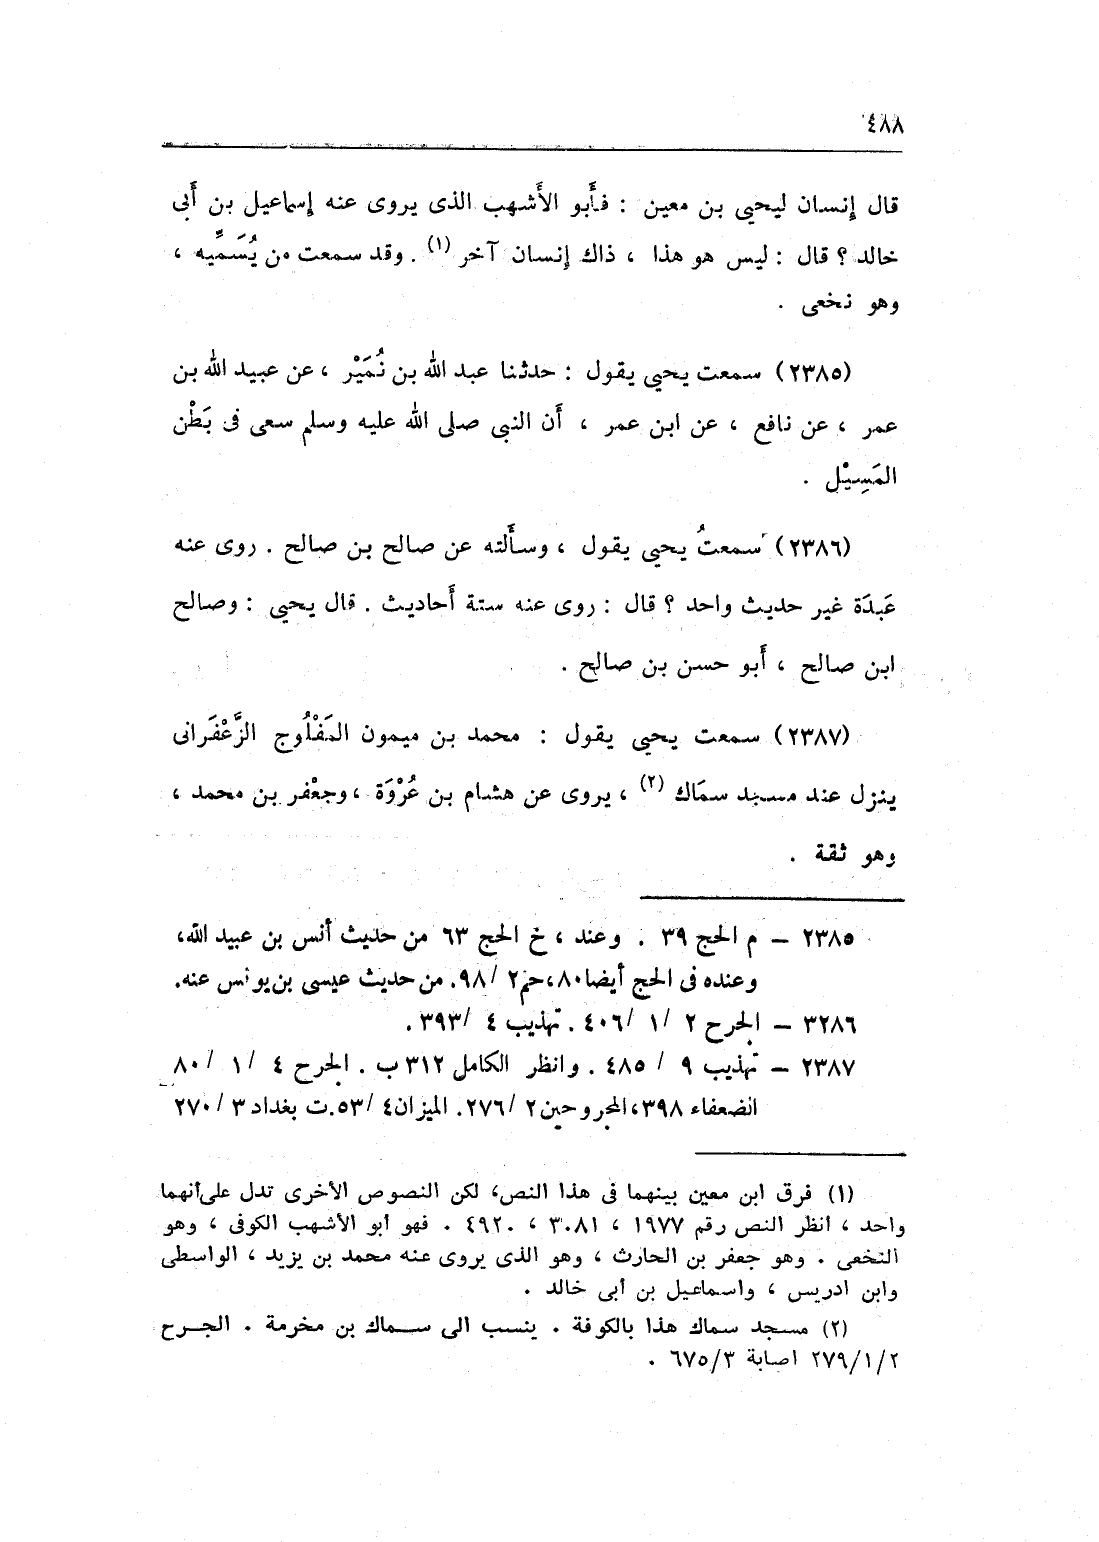 ٤٨٨
قال إنسان ليحيى بن معين : فأبو الأشهب الذى يروى عنه إسماعيل بن أبى
خالد ؟ قال : ليس هو هذا ، ذاك إنسان آخر (١) . وقد سمعت من يُسَمِّيه ،
وهو نخعى .
(٢٣٨٥) سمعت يحيى يقول : حدثنا عبد الله بن نُمَيْر ، عن عبيد الله بن
عمر ، عن نافع ، عن ابن عمر ، أن النبى صلى الله عليه وسلم سعى فى بَطْن
المَسِيْل .
(٢٣٨٦) سمعتُ يحيى يقول ، وسألته عن صالح بن صالح . روى عنه
عَبدَة غير حديث واحد ؟ قال : روى عنه ستة أحاديث . قال يحيى : وصالح
ابن صالح ، أبو حسن بن صالح .
(٢٣٨٧) سمعت يحيى يقول : محمد بن ميمون المَفْلُوج الزَّعْفَرانى
ينزل عند مسجد سمَاك (٢) ، يروى عن هشام بن عُرْوَة ، وجعْفر بن محمد ،
وهو ثقة .
٢٣٨٥ – م الحج ٣٩ . وعند ، خ الحج ٦٣ من حديث أنس بن عبيد الله،
وعنده فى الحج أيضا ٨٠، حم ٢ /٩٨. من حديث عيسى بن يونس عنه.
٣٢٨٦ – الجرح ٢ /١ /٤٠٦ . تهذيب ٤ /٣٩٣ .
٢٣٨٧ – تهذيب ٩ / ٤٨٥ . وانظر الكامل ٣١٢ ب . الجرح ٤ /١ /٨٠
الضعفاء ٣٩٨، المجروحين ٢ /٢٧٦. الميزان ٤ /٥٣. ت بغداد ٣ /٢٧٠
(١) فرق ابن معين بينهما فى هذا النص، لكن النصوص الأخرى تدل على أنهما
واحد ، انظر النص رقم ١٩٧٧ ، ٣٠٨١ ، ٤٩٢٠ . فهو أبو الأشهب الكوفى ، وهو
النخعى . وهو جعفر بن الحارث ، وهو الذى يروى عنه محمد بن يزيد ، الواسطى
وابن ادريس ، واسماعيل بن أبى خالد .
(٢) مسجد سماك هذا بالكوفة . ينسب الى سماك بن مخرمة . الجرح
٢٧٩/١/٢ اصابة ٦٧٥/٣ .